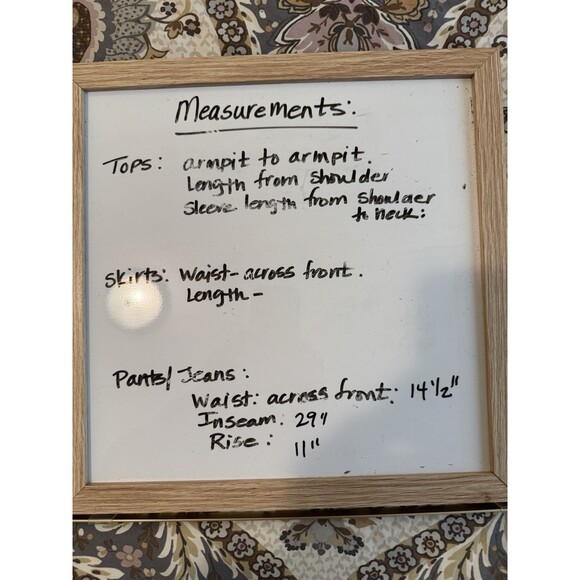 Measurements:
Tops: armpit to armpit.
Length from shoulder
Sleeve length from shoulder
to neck:
Skirts: Waist- across front.
Length -
Pants/Jeans:
Waist: across front: 14 1/2"
Inseam: 29"
Rise: 11"